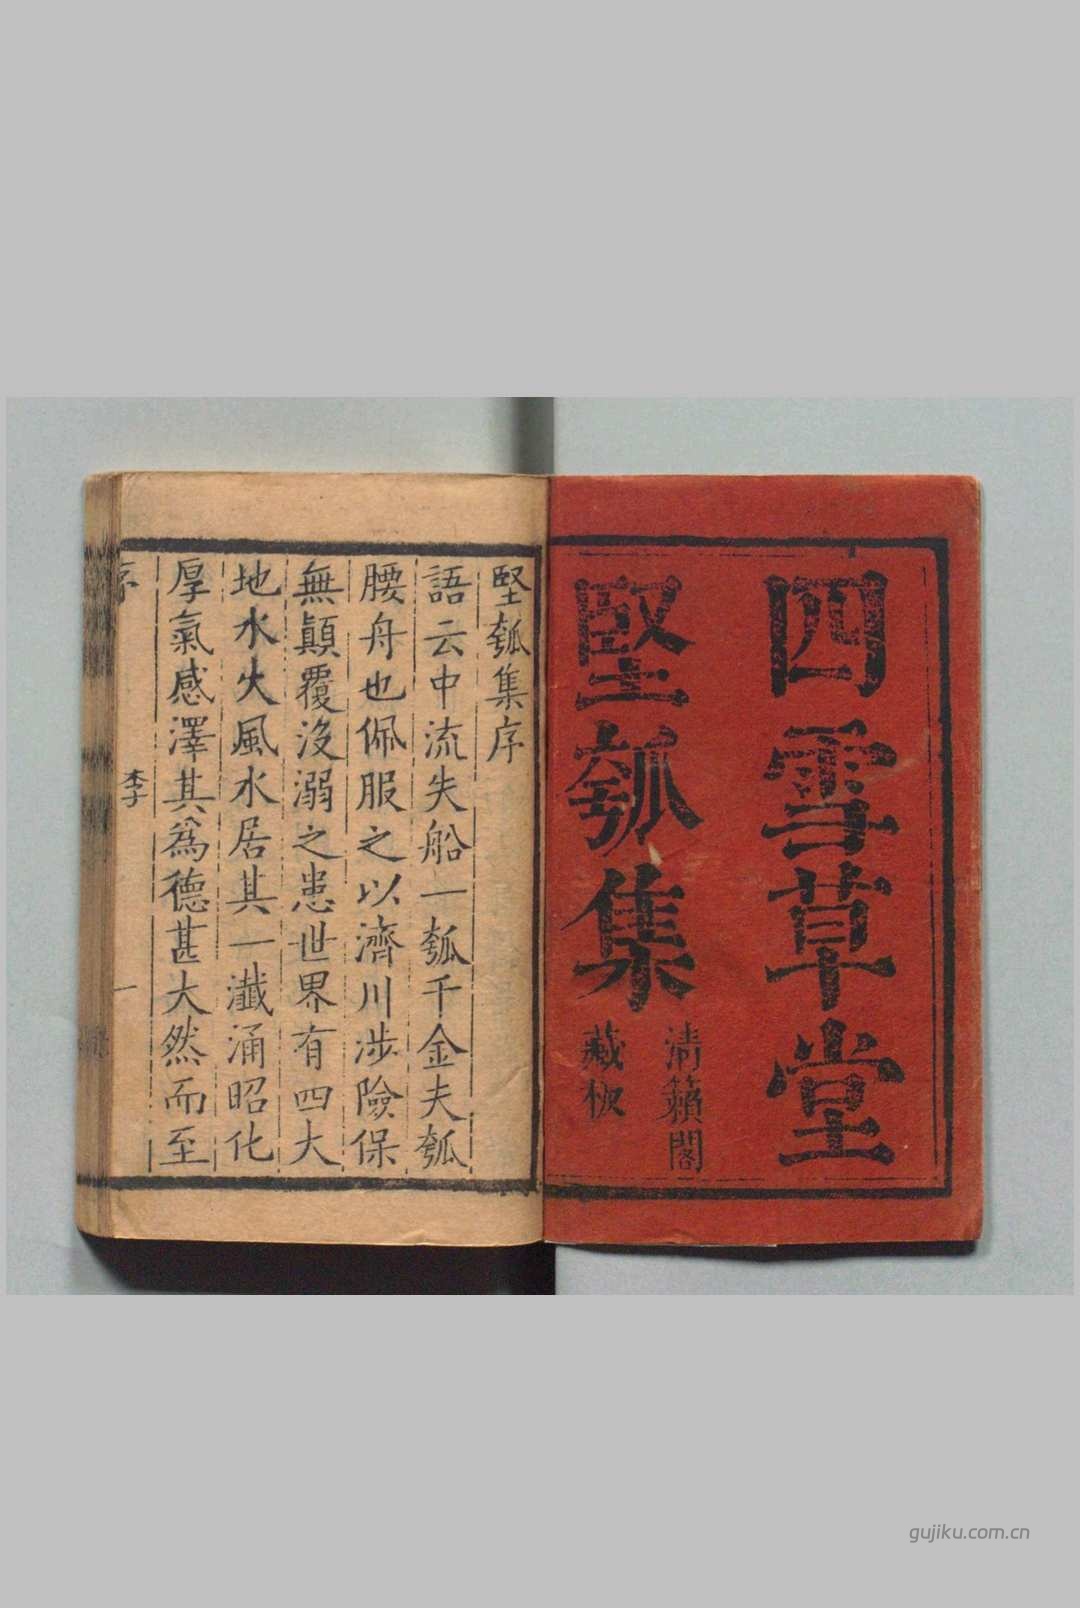 四雪草堂
堅瓠集
清籟閣
藏板
堅瓠集序
語云中流失船一瓠千金夫瓠
腰舟也佩服之以濟川涉險保
無顛覆沒溺之患世界有四大
地水火風水居其一瀸涌昭化
厚氣感澤其為德甚大然而至
序
李
一
gujiku.com.cn